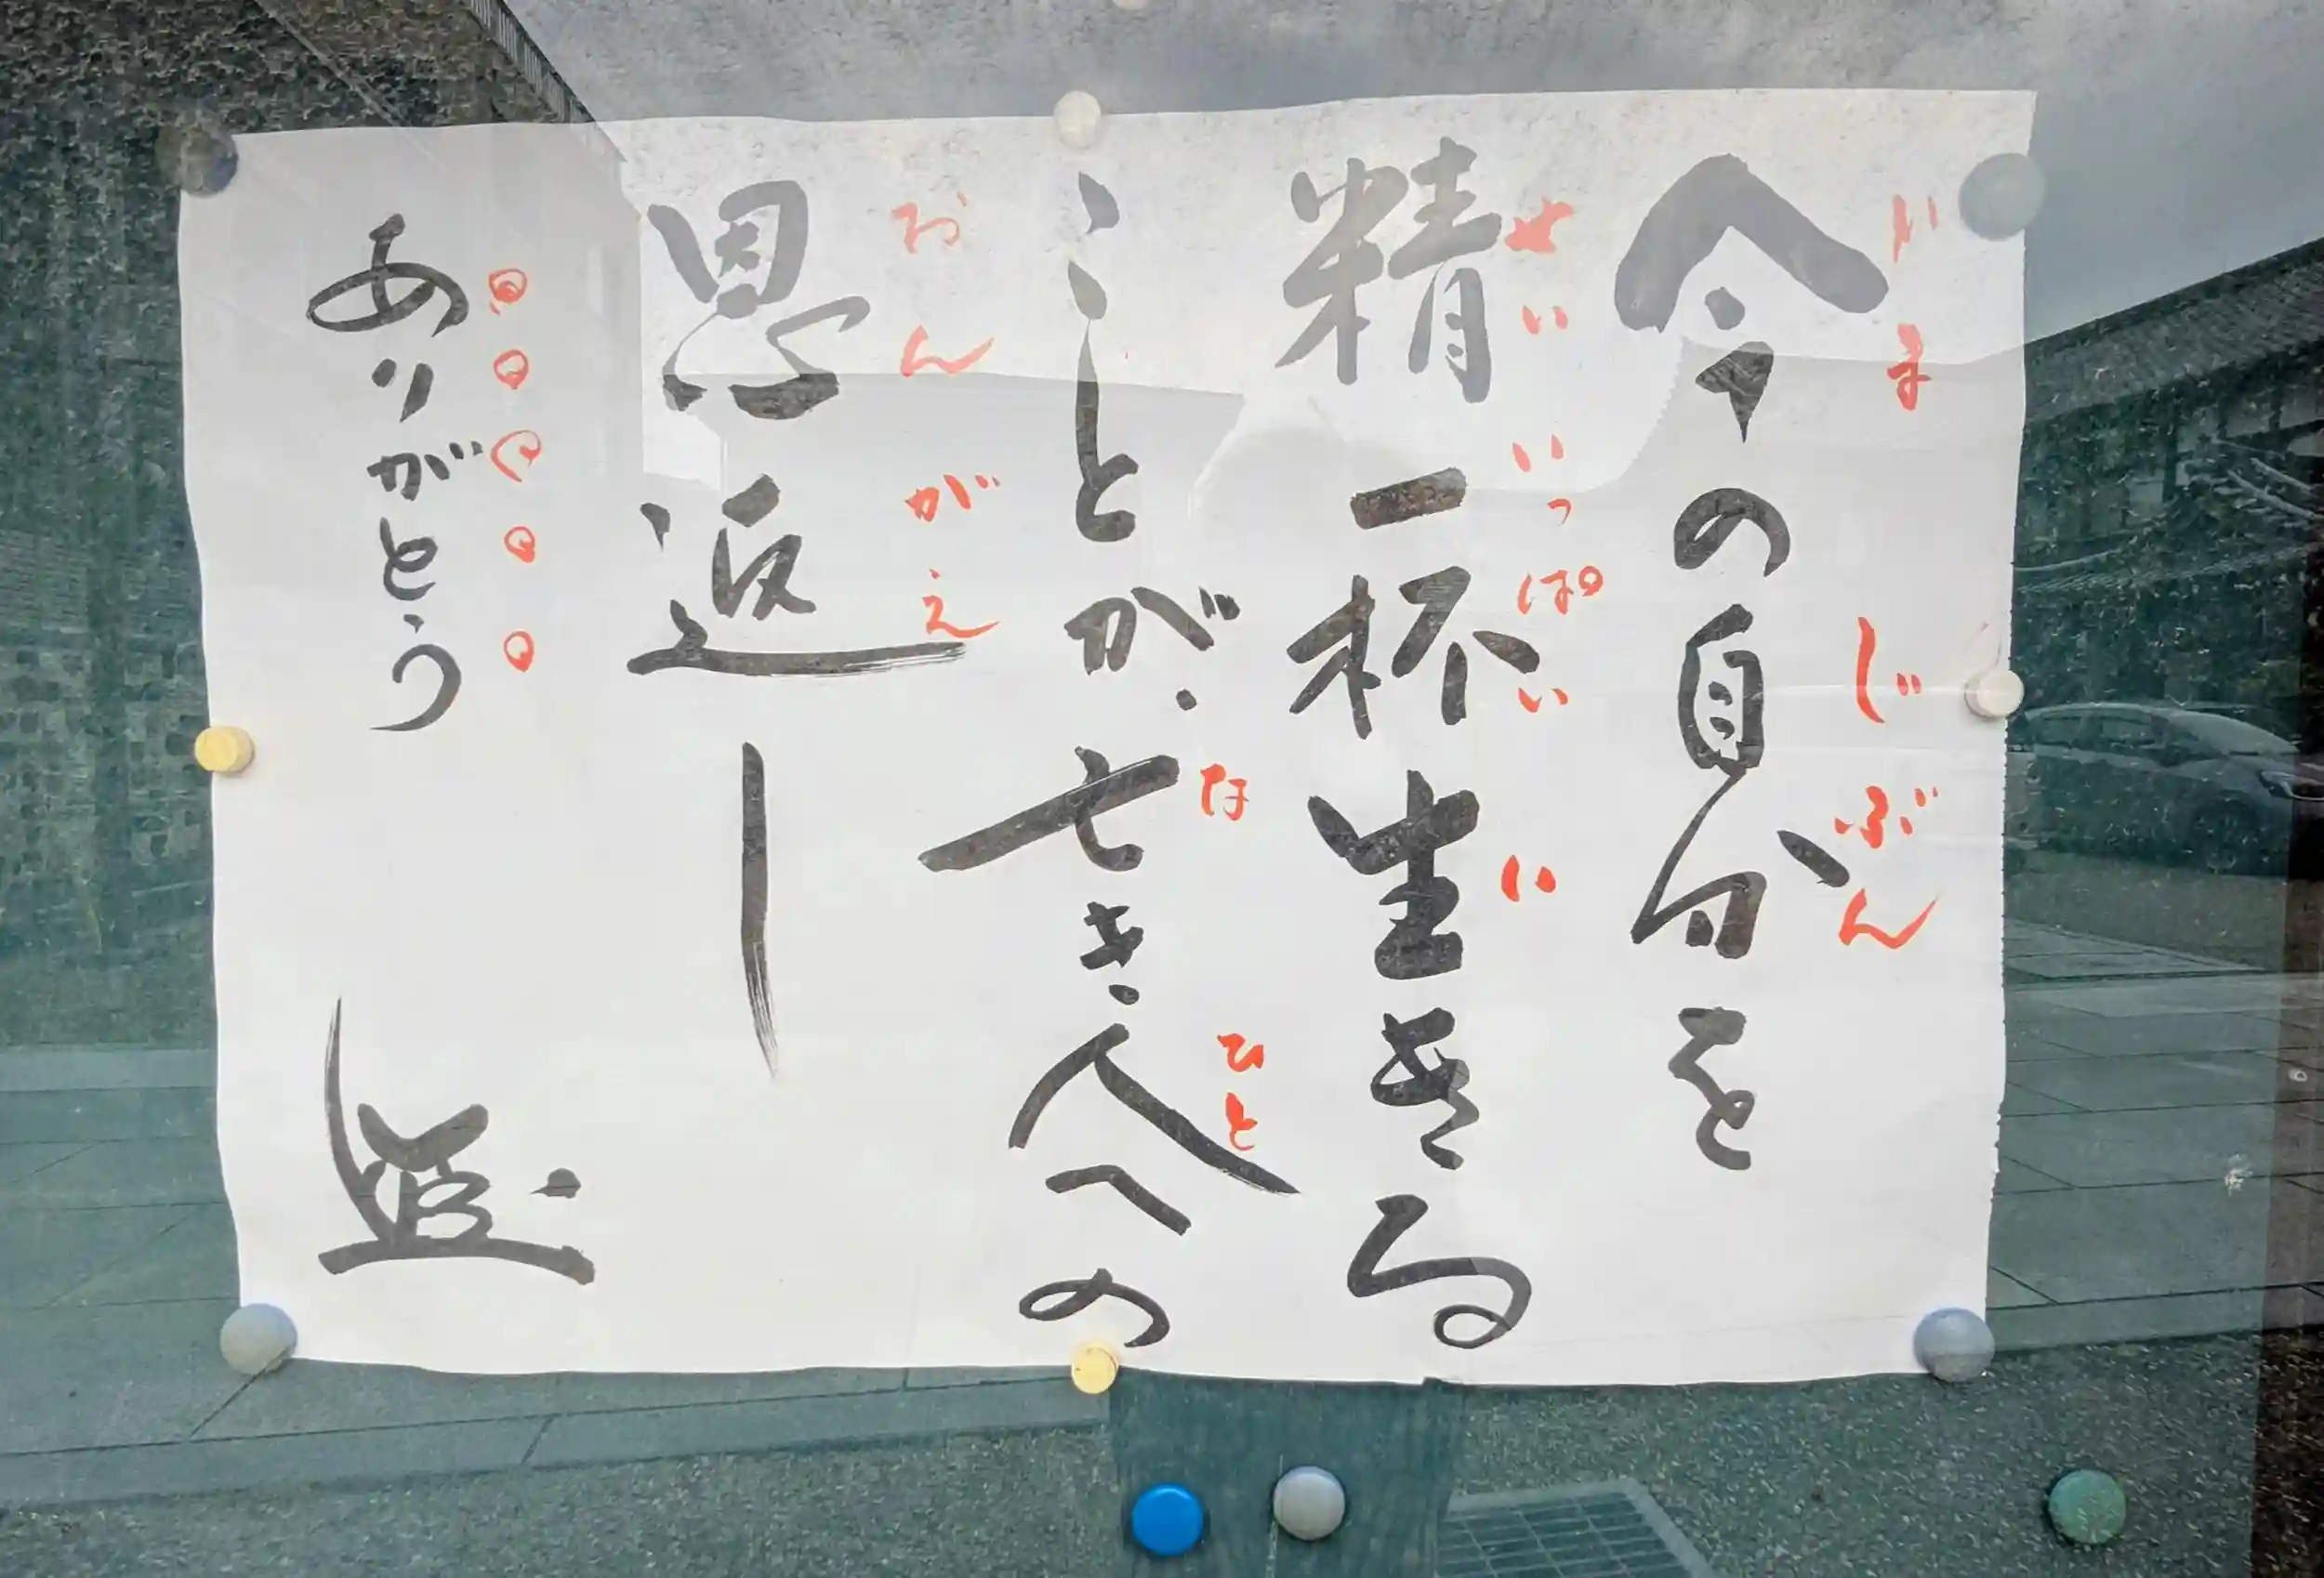 今の自分を
いま じぶん
精一杯生きる
せい いっぱい い
ことが、亡き人への
な ひと
恩返し
おん がえ
ありがとう